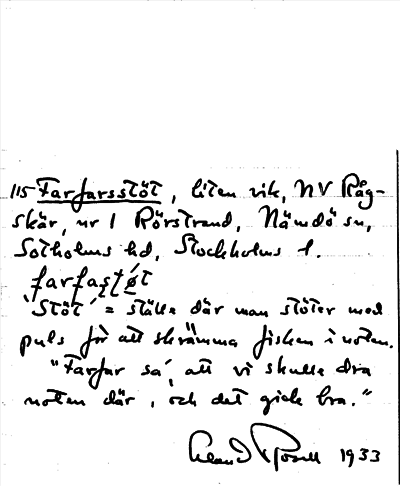 115 Farfarsstöt, liten vik, NV Råg-
skär, nr 1 Rörstrand, Nämdö sn,
Sotholms hd, Stockholms l.
farfastǿt
'Stöt' = ställe där man stöter med
puls för att skrämma fisken i noten.
"Farfar sa', att vi skulle dra
noten där, och det gick bra."
1933